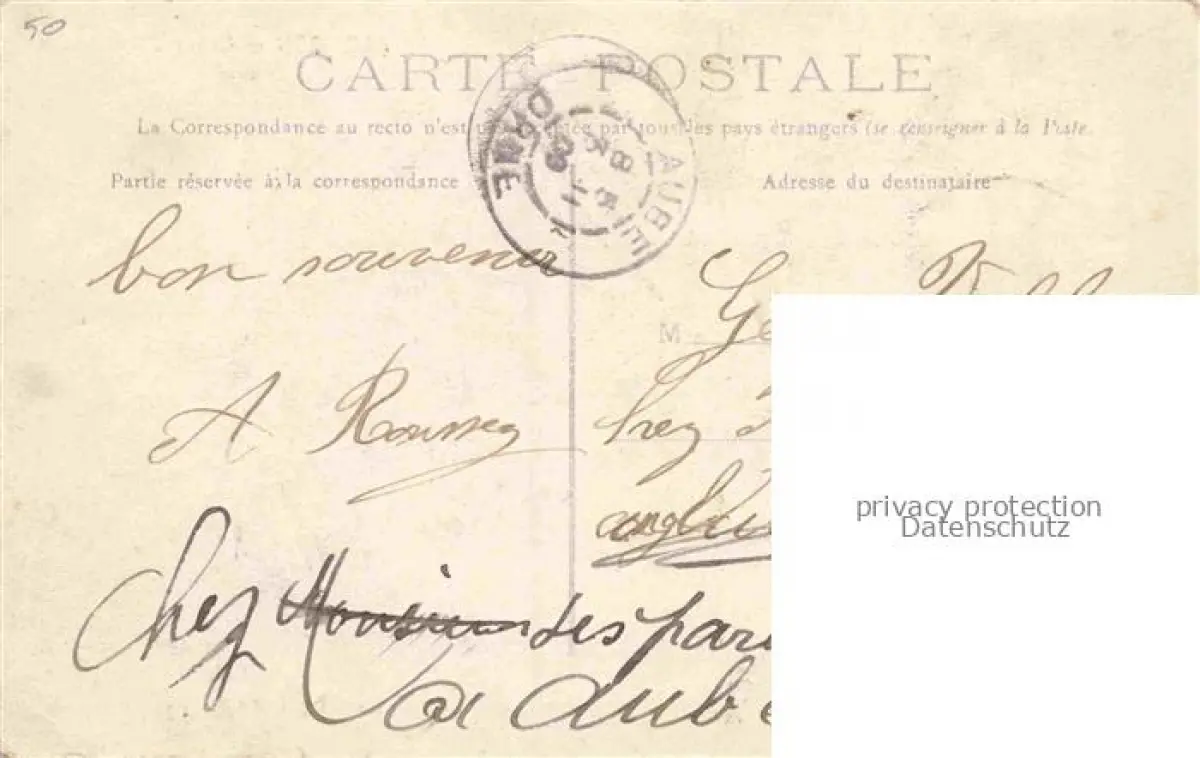 50
CARTE POSTALE
La Correspondance au recto n'est pas acceptée par tous les pays étrangers (se renseigner à la Poste.
Partie réservée à la correspondance
Adresse du destinataire
AUBE
ORNE
bon souvenir
M
A Roussey
chez
Chez Monsieur ses par
Aube
privacy protection
Datenschutz